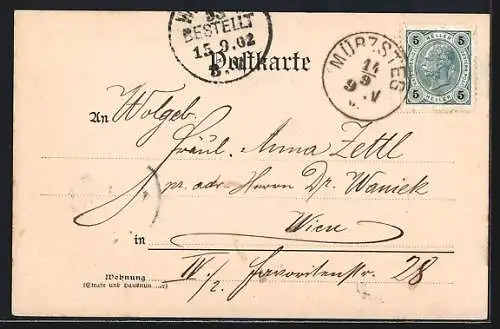 W
BESTELLT
15.9.02
8.V
Postkarte
MÜRZSTEG
14
9
9.V
5 HELLER 5
5 HELLER 5
An Wolgeb.
Fräul. Anna Zettl
pr. adr. Herrn Dr. Waniek
Wien
in
IV./2. Favoritenstr. 28
Wohnung
(Straße und Hausnummer)